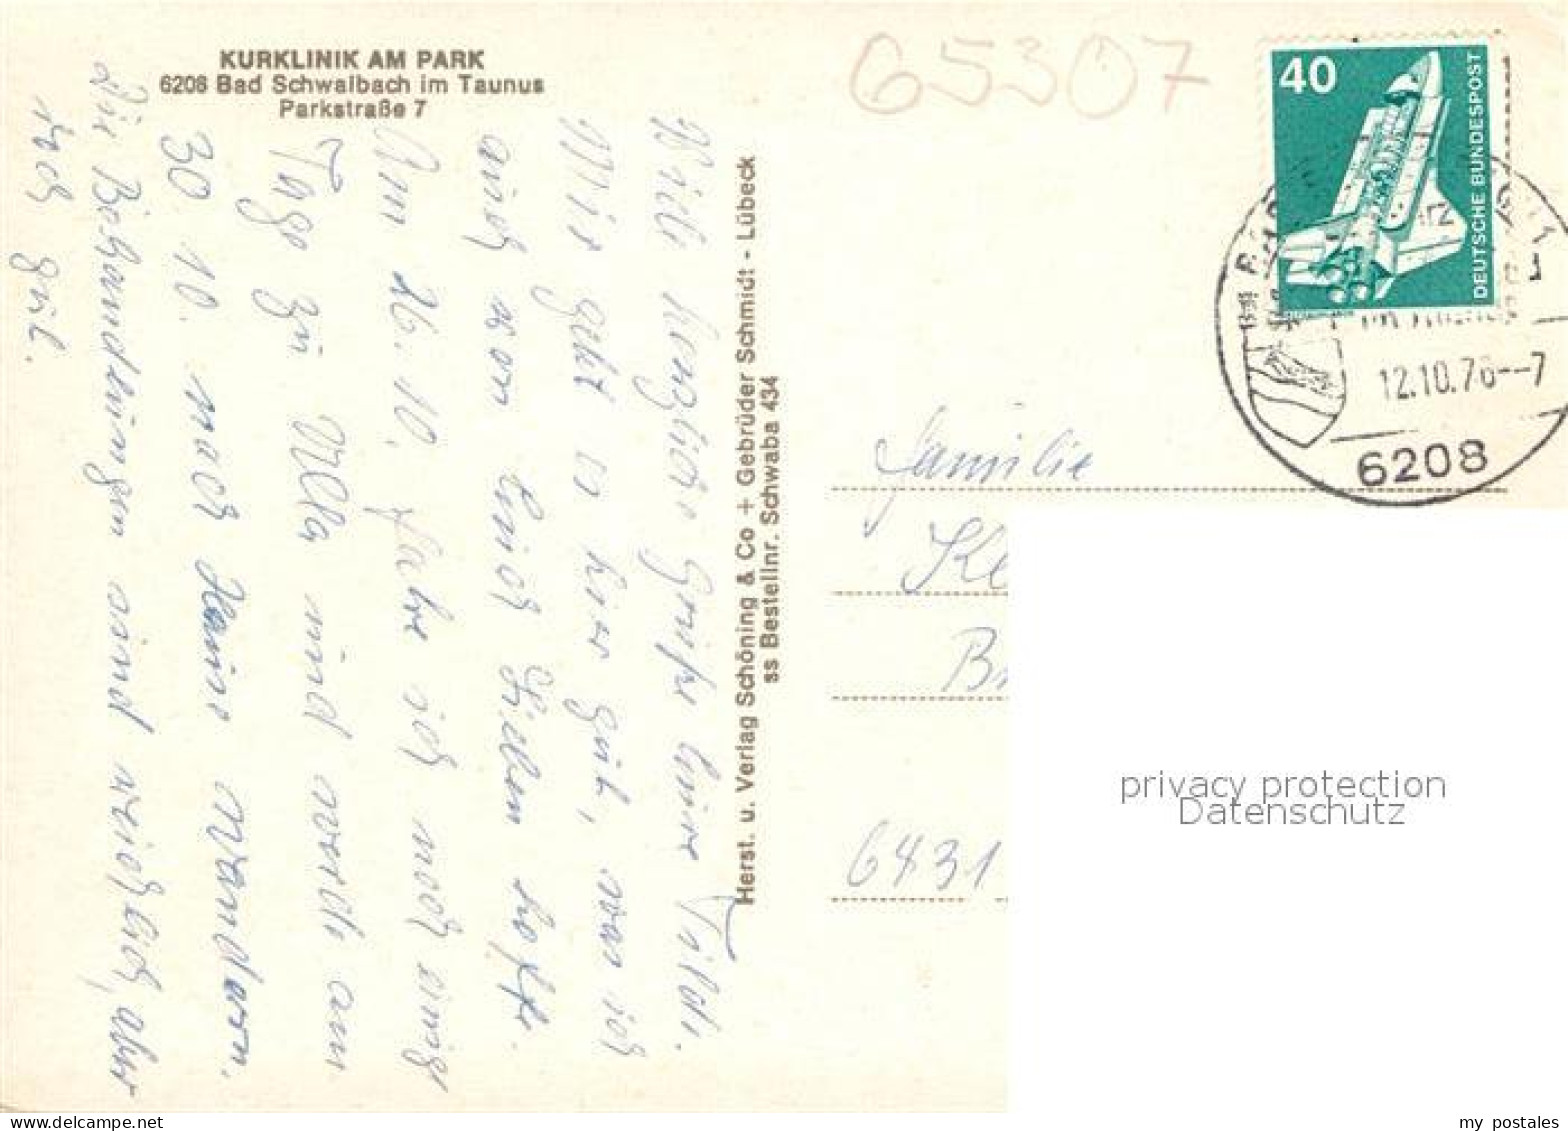 KURKLINIK AM PARK
6208 Bad Schwalbach im Taunus
Parkstraße 7
65307
40
DEUTSCHE BUNDESPOST
12.10.76--7
6208
Viele herzliche Grüße Eure Tilde.
Mir geht es hier gut, was ich
auch von Euch Lieben hoffe.
Am 26. 10. fahre ich noch einige
Tage zu Ulla und werde am
30. 10. nach Hause wandern.
Die Behandlungen sind reichlich, aber
tut gut.
Herst. u. Verlag Schöning & Co + Gebrüder Schmidt - Lübeck
ss Bestellnr. Schwaba 434
Familie
Ke
Br
6431
privacy protection
Datenschutz
my postales